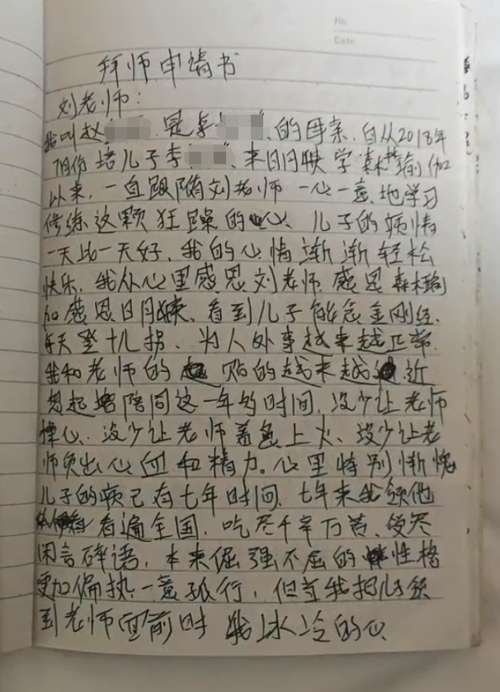 No.
Date.
拜师申请书
刘老师：
我叫赵 是李 的母亲，自从2018年
陪儿子李 来日月映学森林瑜伽
以来，一直跟随刘老师一心一意地学习
修练这颗狂躁的心、儿子的病情
一天比一天好，我的心情渐渐轻松
快乐，我从心里感恩刘老师感恩森林瑜
伽感恩日月映，看到儿子能念金刚经、
每天登十八拐、为人处事越来越正常
我和老师的 贴的越来越近
想起 陪同这一年的时间，没少让老师
操心、没少让老师着急上火、没少让老
师费出心血和精力。心里特别惭愧
儿子的病已有七年时间，七年来我领他
看遍全国，吃尽千辛万苦、受尽
闲言碎语，本来倔强不屈的性格
更加偏执一意孤行，但当我把儿子领
到老师面前时 我冰冷的心